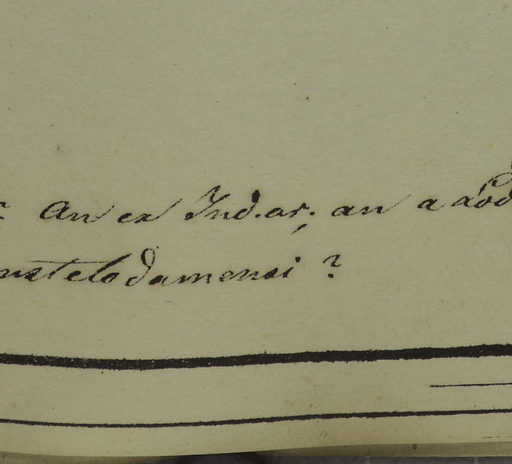 An ex Ind. or; an a
nstelodamensi ?